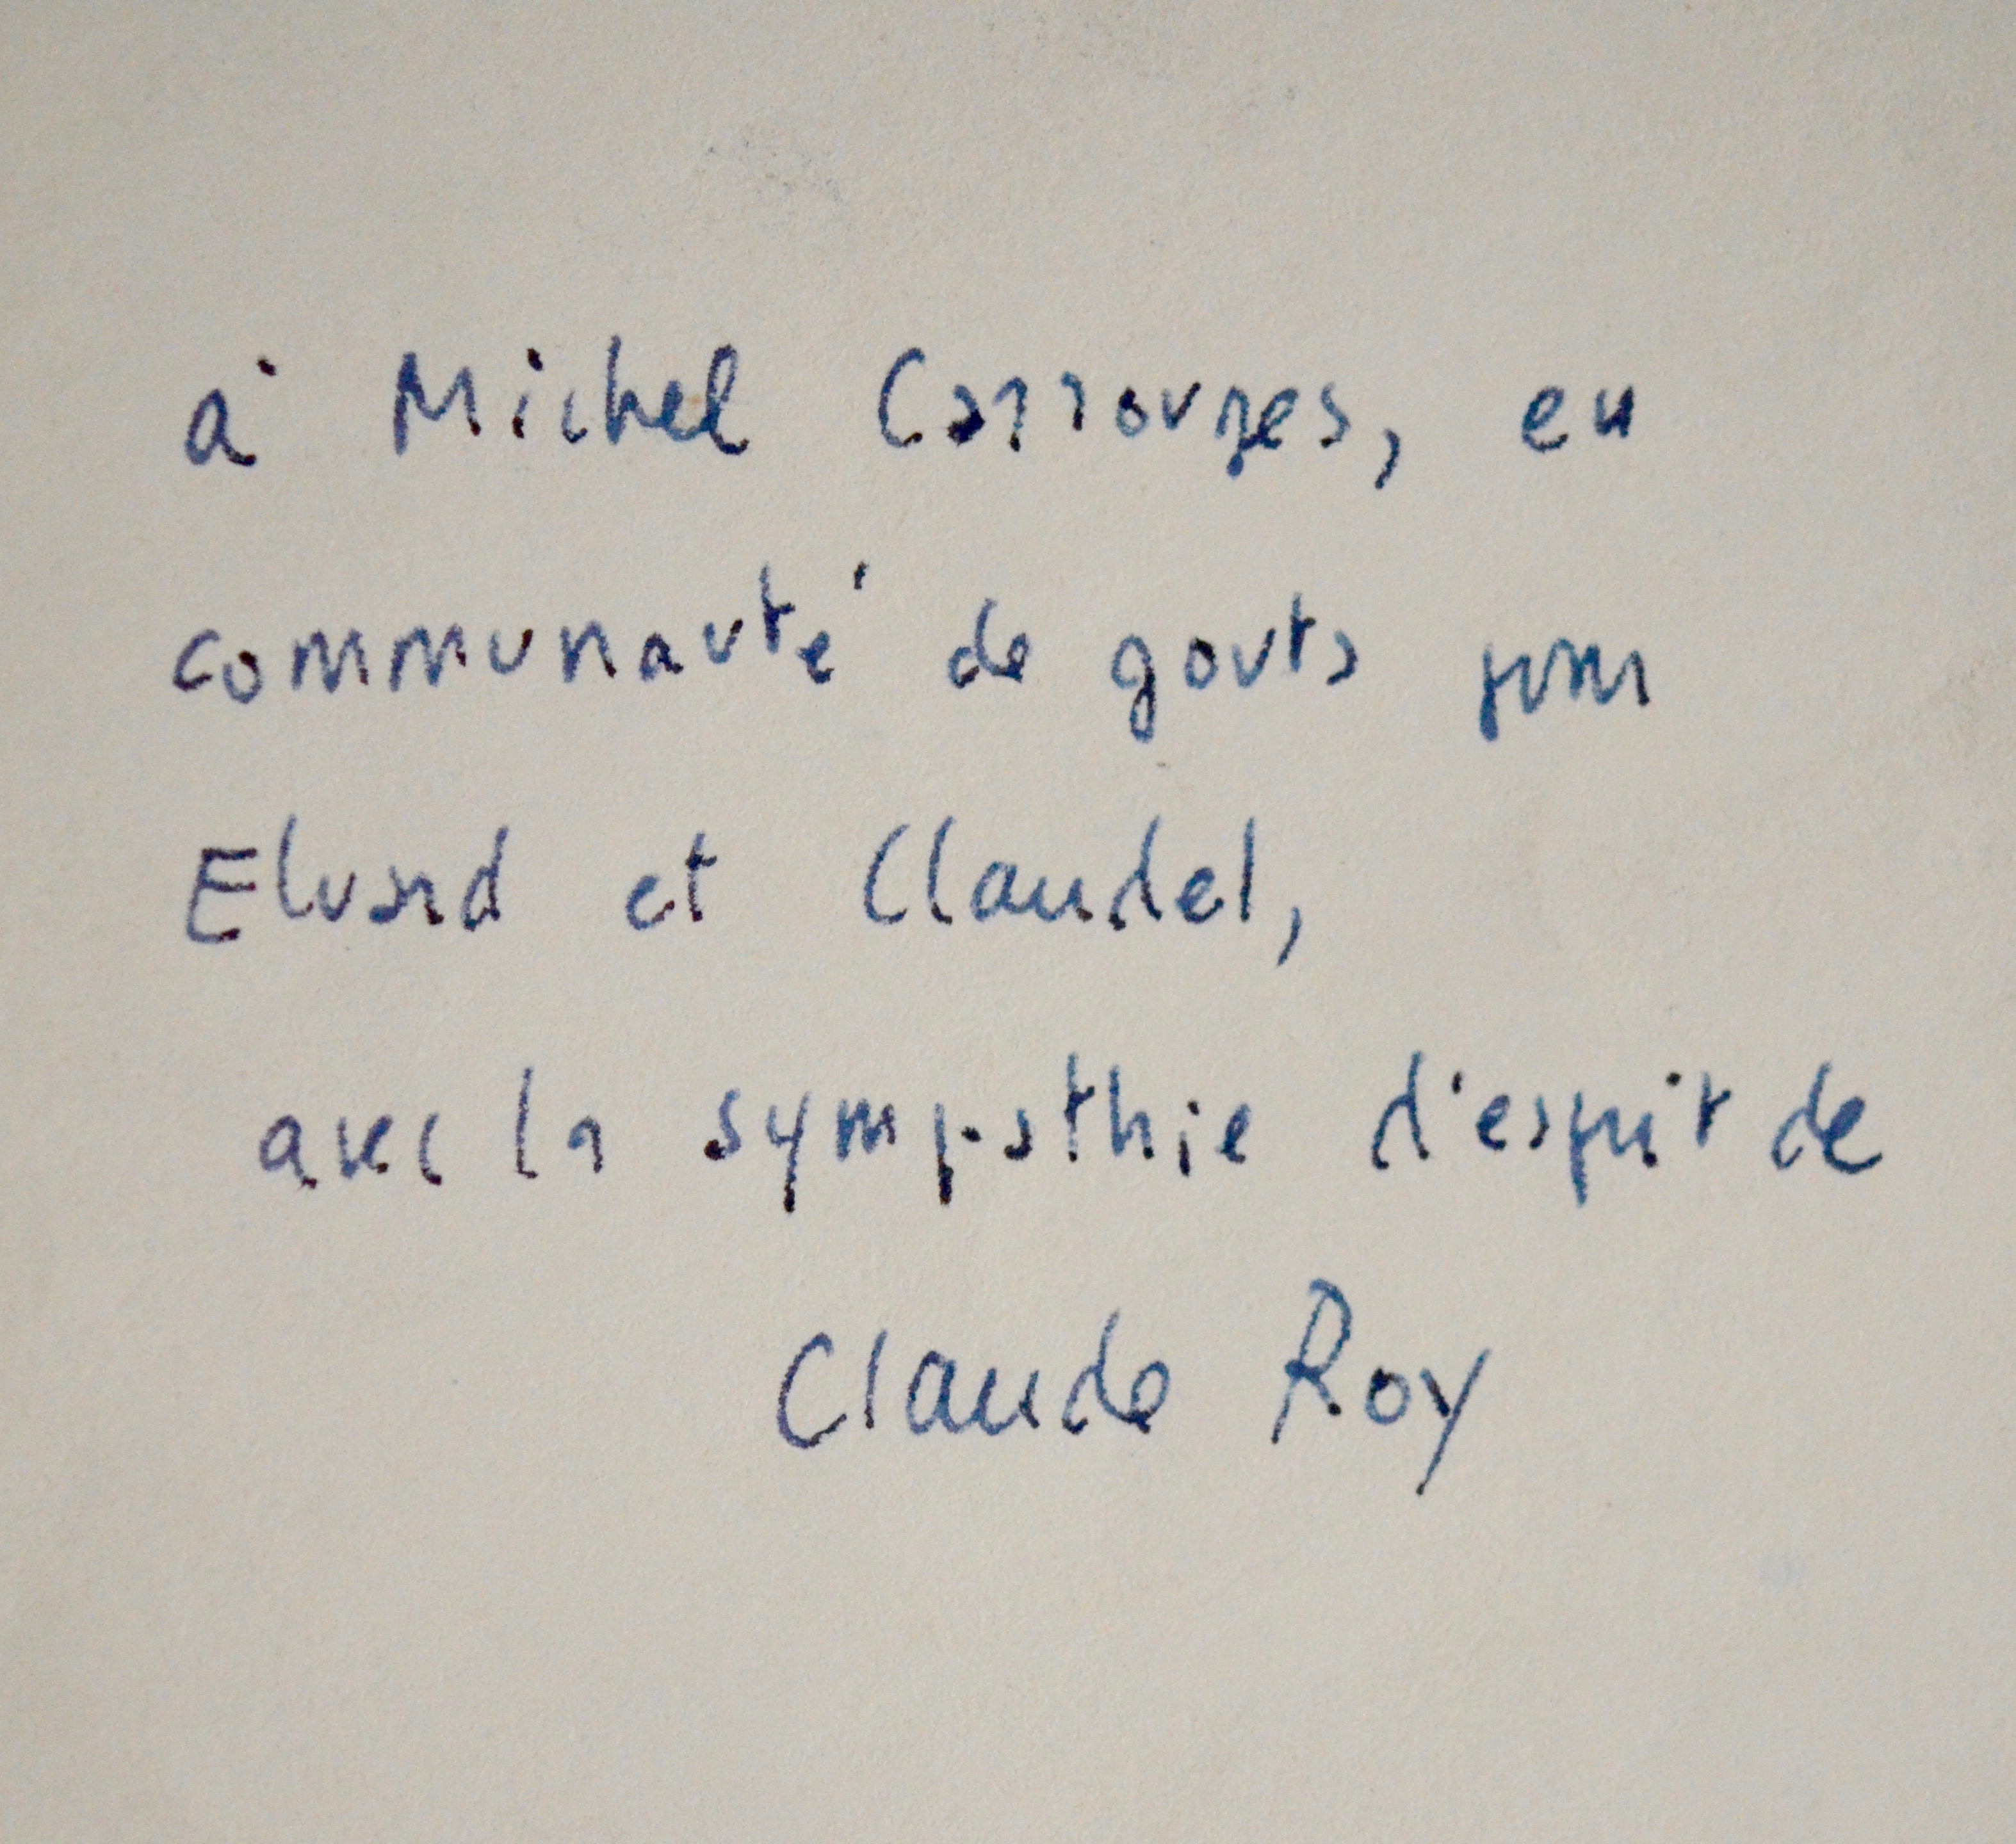 à Michel Carrouges, en
communauté de gouts pour
Eluard et Claudel,
avec la sympathie d'esprit de
Claude Roy